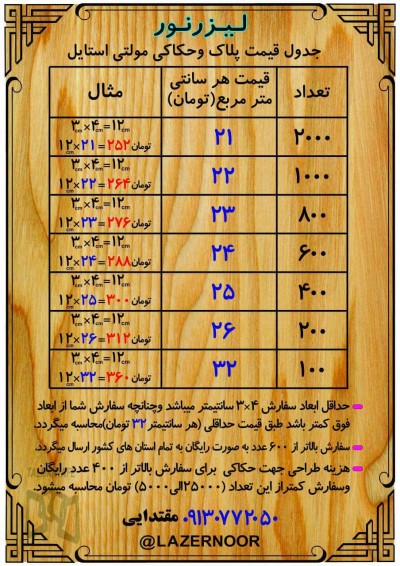 لیزرنور
جدول قیمت پلاک وحکاکی مولتی استایل
تعداد
قیمت هر سانتی
متر مربع(تومان)
مثال
۲۰۰۰
۲۱
۳cm×۴cm=۱۲cm
۱۲cm×۲۱=۲۵۲تومان
۱۰۰۰
۲۲
۳cm×۴cm=۱۲cm
۱۲cm×۲۲=۲۶۴تومان
۸۰۰
۲۳
۳cm×۴cm=۱۲cm
۱۲cm×۲۳=۲۷۶تومان
۶۰۰
۲۴
۳cm×۴cm=۱۲cm
۱۲cm×۲۴=۲۸۸تومان
۴۰۰
۲۵
۳cm×۴cm=۱۲cm
۱۲cm×۲۵=۳۰۰تومان
۲۰۰
۲۶
۳cm×۴cm=۱۲cm
۱۲cm×۲۶=۳۱۲تومان
۱۰۰
۳۲
۳cm×۴cm=۱۲cm
۱۲cm×۳۲=۳۶۰تومان
حداقل ابعاد سفارش ۴×۳ سانتیمتر میباشد وچنانچه سفارش شما از ابعاد
فوق کمتر باشد طبق قیمت حداقلی (هر سانتیمتر ۳۲ تومان)محاسبه میگردد.
سفارش بالاتر از ۶۰۰ عدد به صورت رایگان به تمام استان های کشور ارسال میگردد.
هزینه طراحی جهت حکاکی برای سفارش بالاتر از ۴۰۰ عدد رایگان
وسفارش کمتر از این تعداد (۲۵۰۰۰الی۵۰۰۰) تومان محاسبه میشود.
۰۹۱۳۰۷۷۲۰۵۰ مقتدایی
@LAZERNOOR